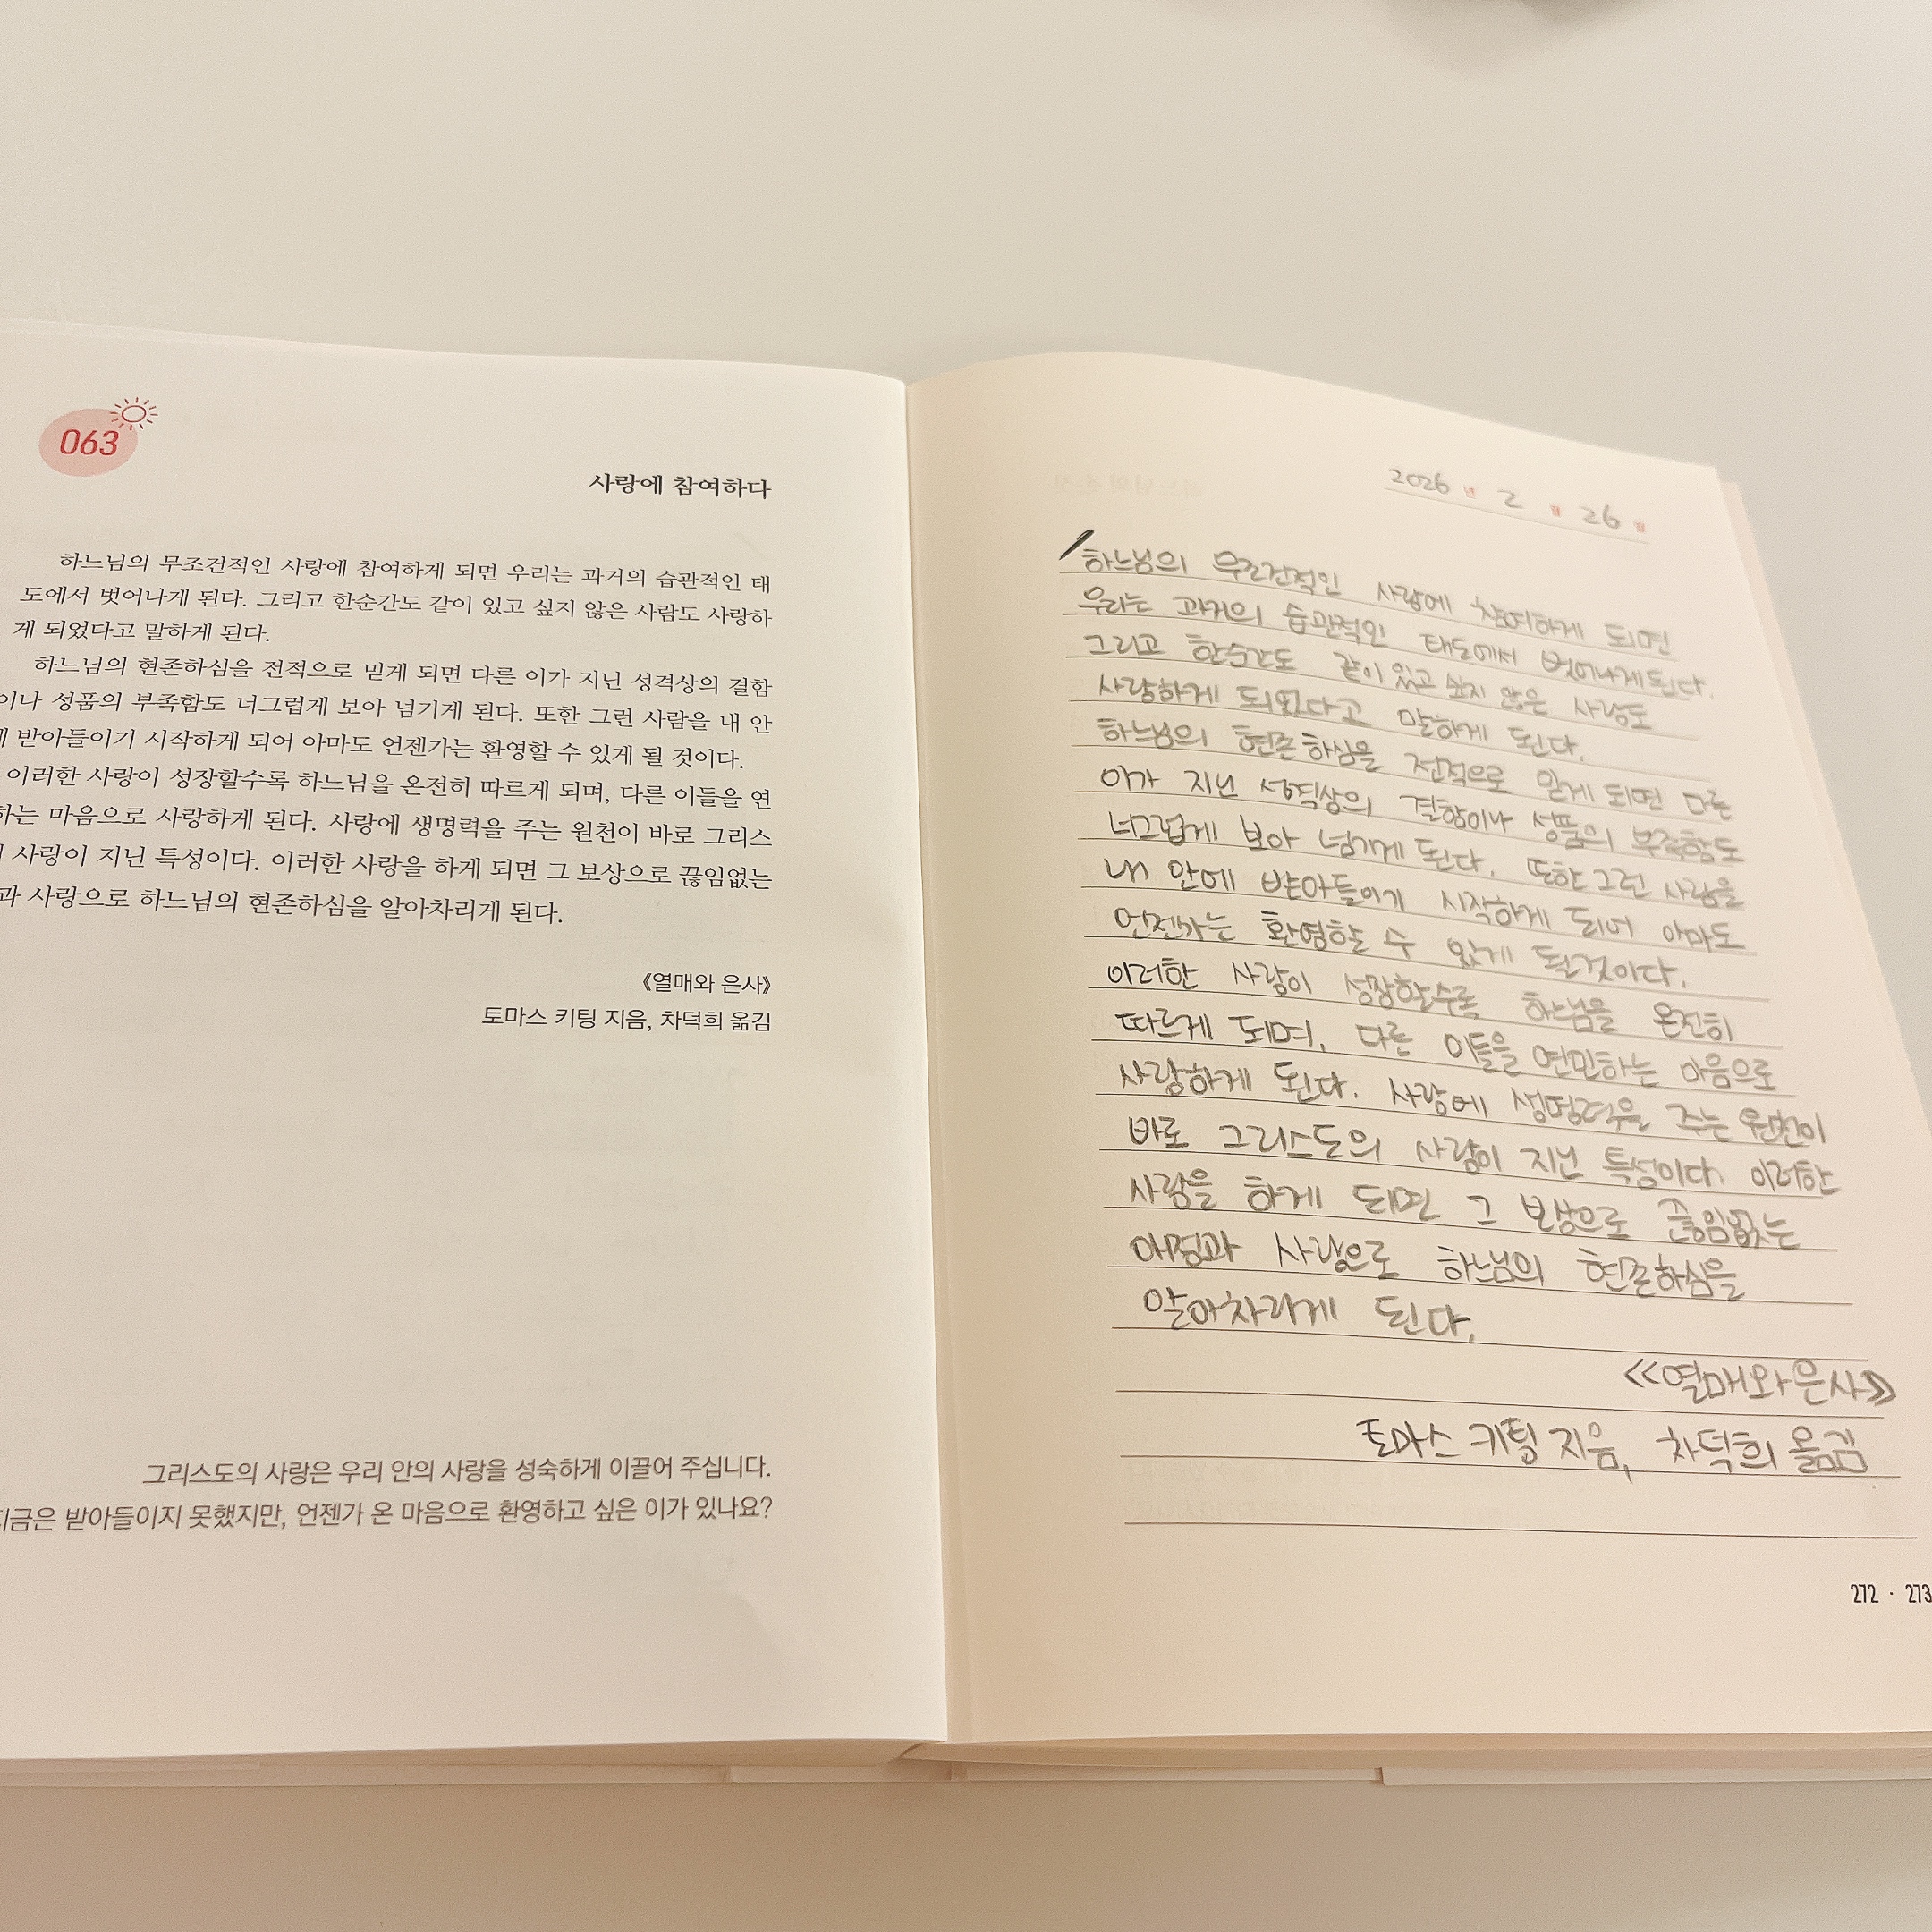 063
사랑에 참여하다
하느님의 무조건적인 사랑에 참여하게 되면 우리는 과거의 습관적인 태
도에서 벗어나게 된다. 그리고 한순간도 같이 있고 싶지 않은 사람도 사랑하
게 되었다고 말하게 된다.
하느님의 현존하심을 전적으로 믿게 되면 다른 이가 지닌 성격상의 결함
이나 성품의 부족함도 너그럽게 보아 넘기게 된다. 또한 그런 사람을 내 안
받아들이기 시작하게 되어 아마도 언젠가는 환영할 수 있게 될 것이다.
이러한 사랑이 성장할수록 하느님을 온전히 따르게 되며, 다른 이들을 연
하는 마음으로 사랑하게 된다. 사랑에 생명력을 주는 원천이 바로 그리스
사랑이 지닌 특성이다. 이러한 사랑을 하게 되면 그 보상으로 끊임없는
과 사랑으로 하느님의 현존하심을 알아차리게 된다.
《열매와 은사》
토마스 키팅 지음, 차덕희 옮김
그리스도의 사랑은 우리 안의 사랑을 성숙하게 이끌어 주십니다.
지금은 받아들이지 못했지만, 언젠가 온 마음으로 환영하고 싶은 이가 있나요?
2026 년 2 월 26 일
하느님의 무조건적인 사랑에 참여하게 되면
우리는 과거의 습관적인 태도에서 벗어나게 된다.
그리고 한순간도 같이 있고 싶지 않은 사람도
사랑하게 되었다고 말하게 된다.
하느님의 현존하심을 전적으로 믿게 되면 다른
이가 지닌 성격상의 결함이나 성품의 부족함도
너그럽게 보아 넘기게 된다. 또한 그런 사람을
내 안에 받아들이기 시작하게 되어 아마도
언젠가는 환영할 수 있게 될것이다.
이러한 사랑이 성장할수록 하느님을 온전히
따르게 되며, 다른 이들을 연민하는 마음으로
사랑하게 된다. 사랑에 생명력을 주는 원천이
바로 그리스도의 사랑이 지닌 특성이다. 이러한
사랑을 하게 되면 그 보상으로 끊임없는
애정과 사랑으로 하느님의 현존하심을
알아차리게 된다.
<<열매와 은사>>
토마스 키팅 지음, 차덕희 옮김
272 · 273